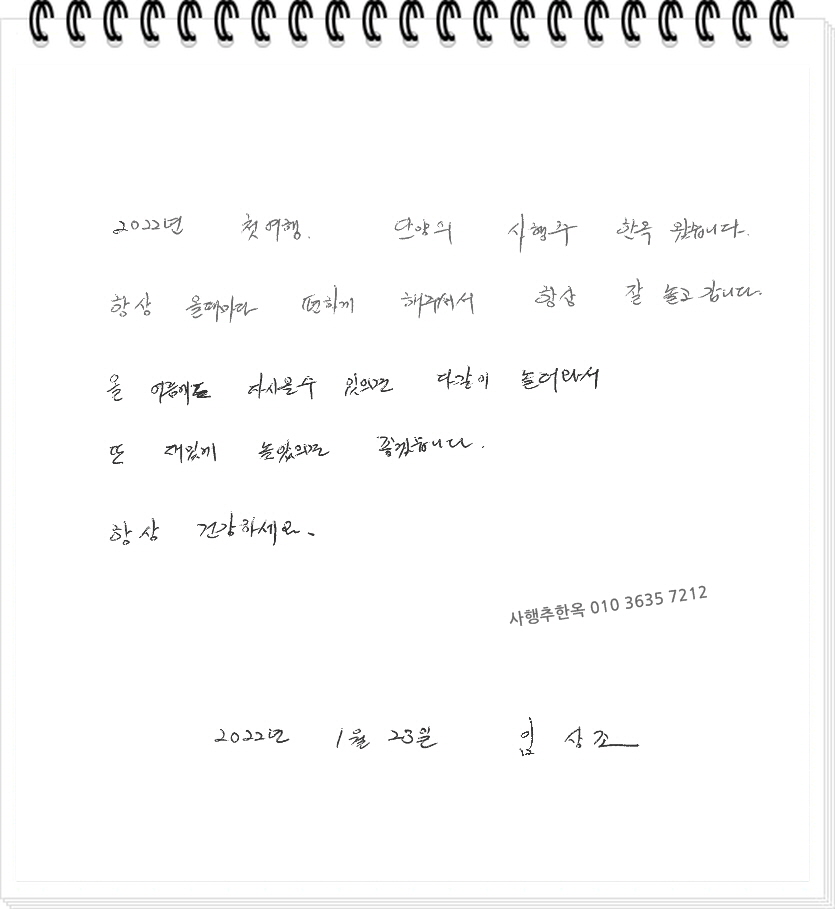 2022년 첫여행. 단양의 사행추 한옥 왔습니다.
항상 올때마다 편하게 해주셔서 항상 잘 놀고 갑니다.
올 여름에도 다시올수 있으면 다같이 놀러와서
또 재밌게 놀았으면 좋겠습니다.
항상 건강하세요.
사행추한옥 010 3635 7212
2022년 1월 23일 임상조